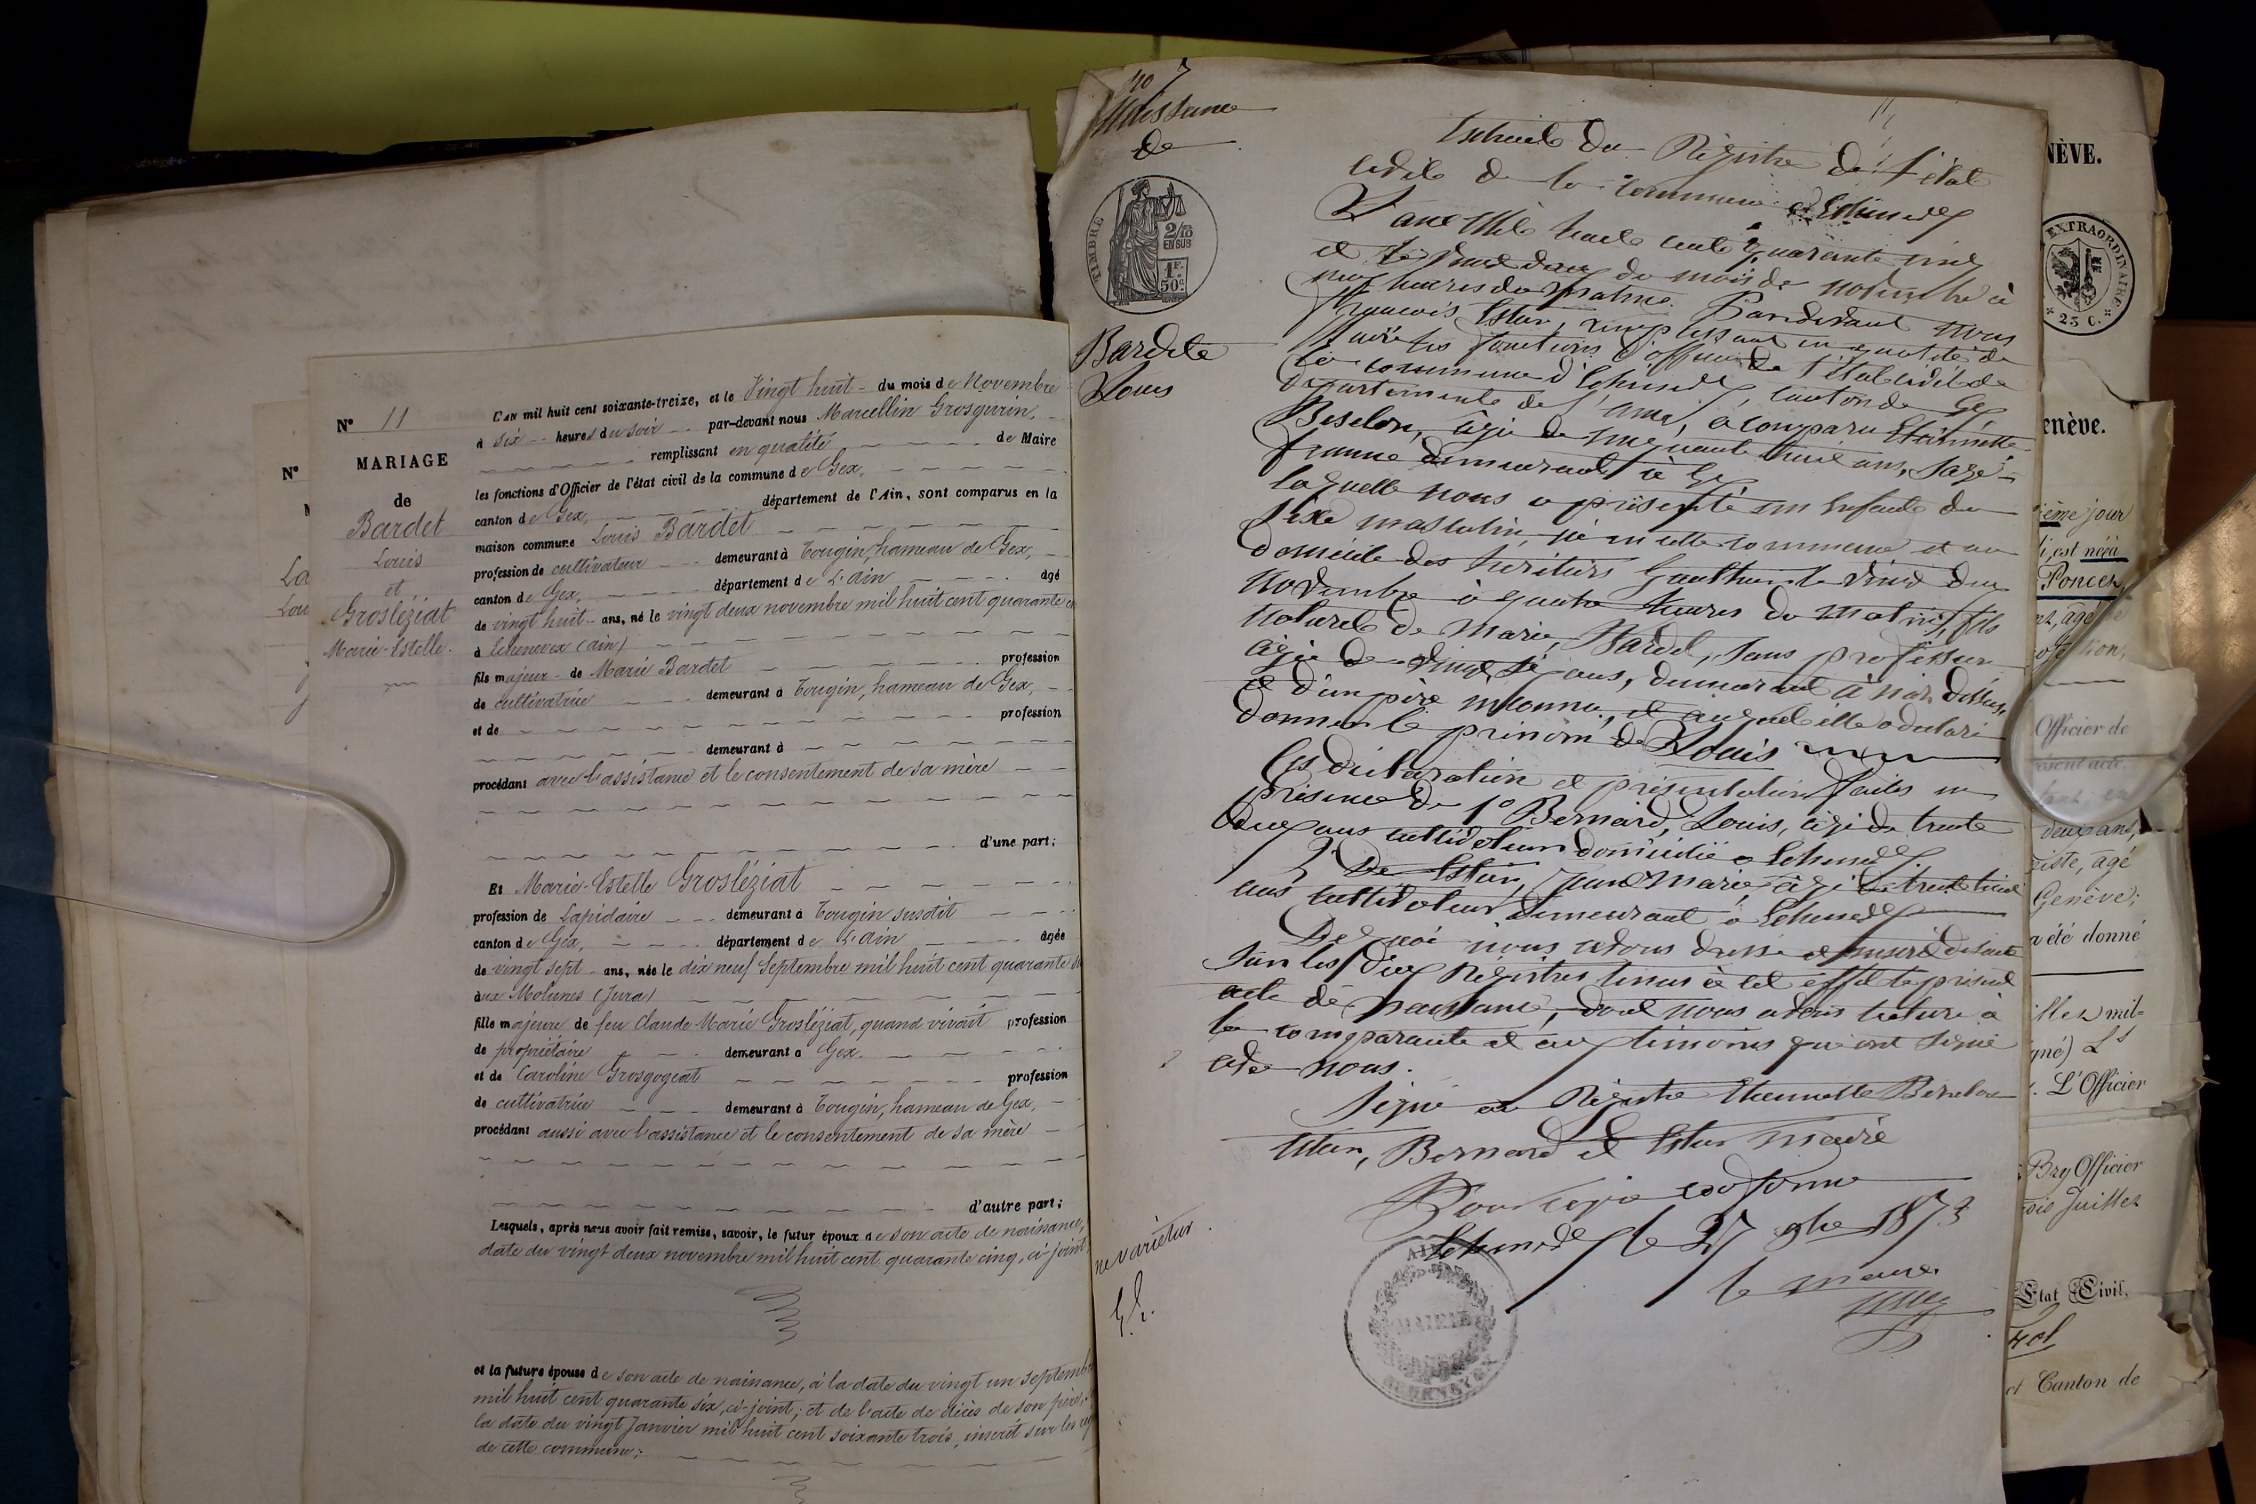 N° 11
MARIAGE
de
Bardet
Louis
et
Grosléziat
Marie-Estelle.
L'AN mil huit cent soixante-treize, et le Vingt huit du mois de Novembre
à six heures du soir par-devant nous Marcellin Grosgurin,
remplissant en qualité de Maire
les fonctions d'Officier de l'état civil de la commune de Gex,
canton de Gex, département de l'Ain, sont comparus en la
maison commune Louis Bardet
profession de cultivateur demeurant à Tougin, hameau de Gex,
canton de Gex, département de L'Ain âgé
de vingt huit ans, né le vingt deux novembre mil huit cent quarante
à Echenevex (Ain)
fils majeur de Marie Bardet profession
de cultivatrice demeurant à Tougin, hameau de Gex,
et de profession
demeurant à
procédant avec l'assistance et le consentement de sa mère
d'une part;
Et Marie-Estelle Grosléziat
profession de Lapidaire demeurant à Tougin susdit
canton de Gex, département de L'Ain âgée
de vingt sept ans, née le dix neuf Septembre mil huit cent quarante
aux Molunes (Jura)
fille majeure de feu Claude Marie Grosléziat, quand vivait profession
de propriétaire demeurant à Gex.
et de Caroline Grosgogeat profession
de cultivatrice demeurant à Tougin, hameau de Gex,
procédant aussi avec l'assistance et le consentement de sa mère
d'autre part;
Lesquels, après nous avoir fait remise, savoir, le futur époux de son acte de naissance,
date du vingt deux novembre mil huit cent quarante cinq, ci-joint
et la future épouse de son acte de naissance, à la date du vingt un septembre
mil huit cent quarante six, ci-joint; et de l'acte de décès de son père,
la date du vingt Janvier mil huit cent soixante trois, inscrit sur les
de cette commune;
N°
La
Lou
no 7
Naissance
de
TIMBRE
2/10
EN SUS
1F.
50c.
Bardete
Louis
Extrait du Régistre de l'état
civile de la commune d'Echenevex
L'ane Mile huit cente quarante cinq
et le vingt deux du mois de novembre à
neuf heures du matine. Pardevant nous
François Estur, remplissant en qualité de
Maire les fonctions d'officier de l'état civil de
la commune d'Echenevex, canton de Gex,
département de l'Ain, a comparu Etiennette
Beselon, âgée de cinquante huit ans, Sage-
femme demeurant à Gex
laquelle nous a présenté un enfante du
sexe masculin, né en cette commune et au
domicile des héritiers Gauthier le vingt deux
novembre à quatre heures du matin, fils
naturel de Marie, Bardet, sans profession
âgée de vingt six ans, demeurant à non dessus,
et d'un père inconnu, et auquel elle a déclaré
donner le prénom de Louis
Ces déclaration et présentation faites en
présence de 1° Bernard, Louis, âgé de trente
deux ans cultivateur domicilié a Echenevex
2° De Estur, Jean Marie, âgé de trente huit
ans cultivateur demeurant à Echenevex
De quoi nous avons dressé et inséré de suite
sur les deux Régistres tenus à cet effet le présent
acte de naissance, dont nous avons lecture à
la comparante et aux témoins qui ont signé
avec nous.
Signé au Régistre Etiennette Beselon
Estur, Bernard et Estur maire
Pour copie conforme
Echenevex le 27 9bre 1873
le maire
ne varietur.
AIN
MAIRIE
NÈVE.
EXTRAORDINAIRE
* 25 C. *
enève.
ième jour
i, est né(e)
Poncet,
Officier de
deux ans,
iste, âgé
Genève;
a été donné
illet mil-
gné) Ls
L'Officier
Bry Officier
ois Juillet
Etat Civil,
et Canton de